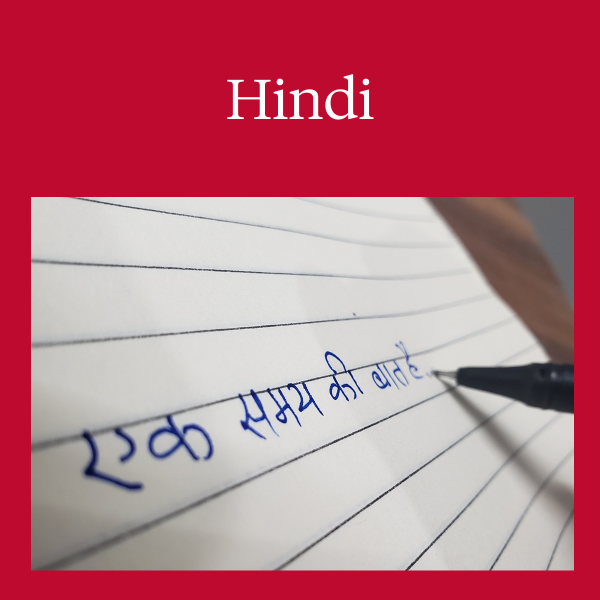 Hindi
एक समय की बात है..